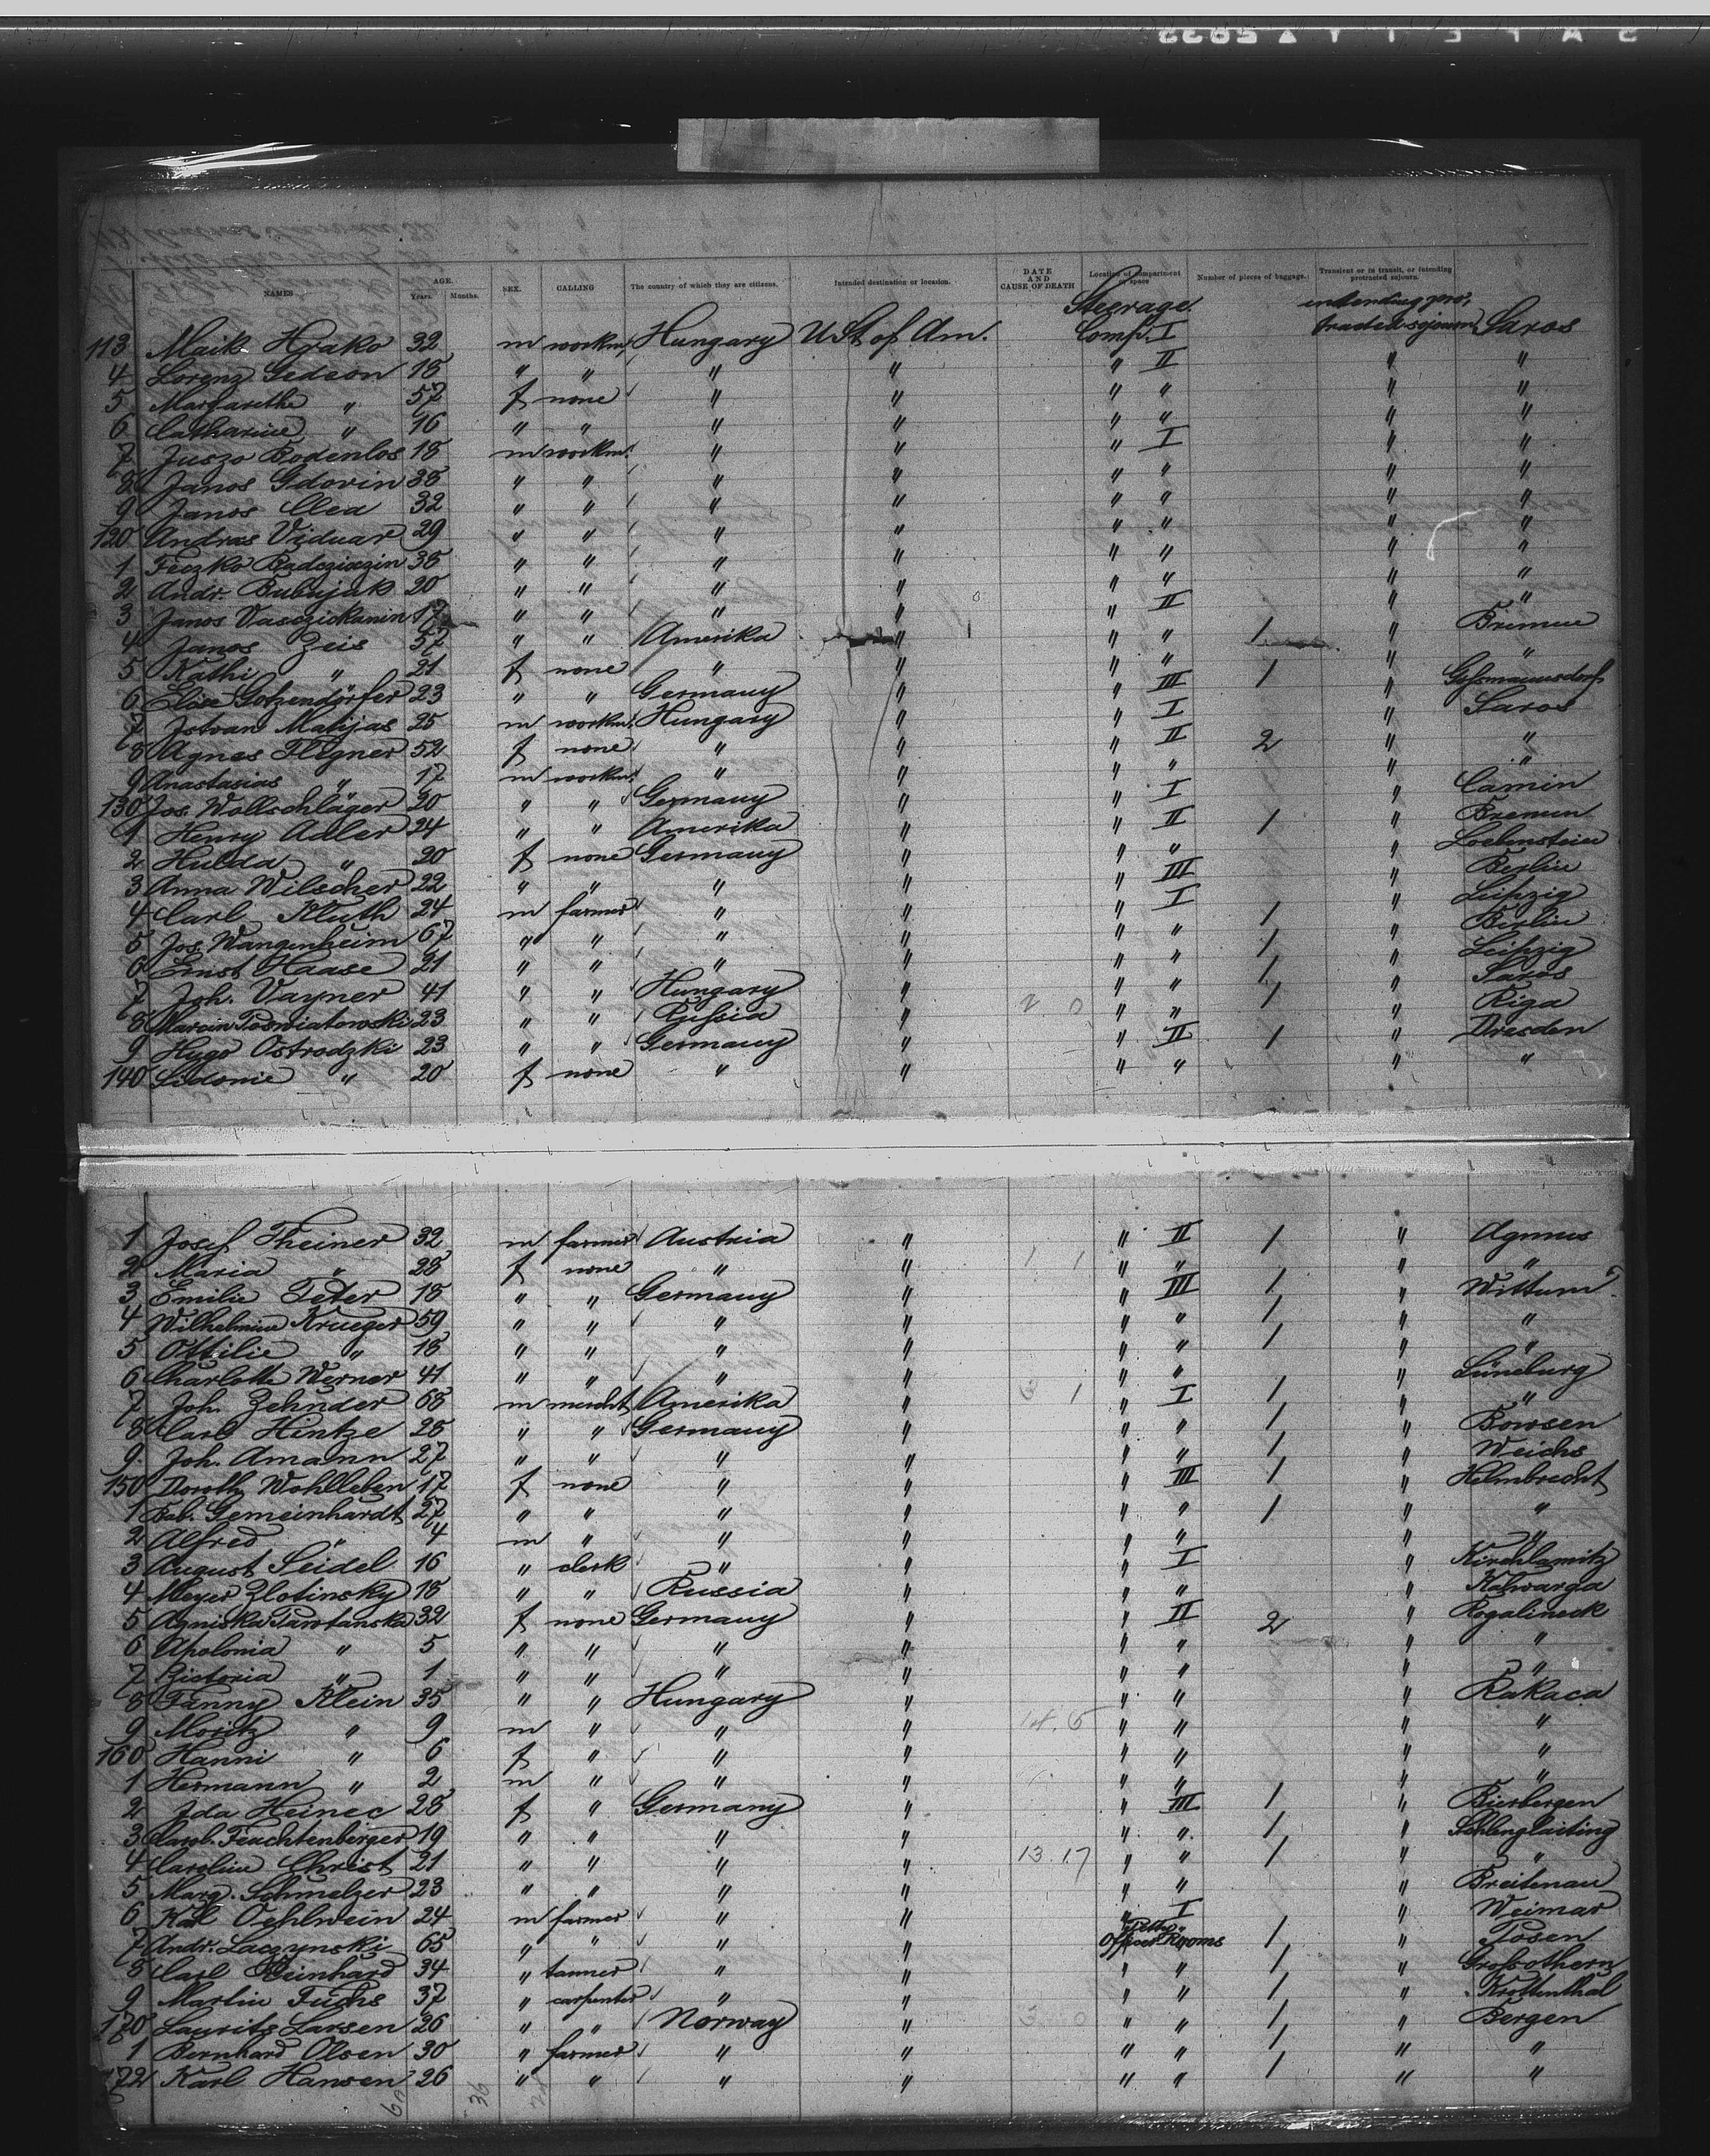 NAMES AGE. Years. Months. SEX. CALLING The country of which they are citizens. Intended destination or location. DATE AND CAUSE OF DEATH Location of compartment or space Number of pieces of baggage. Transient or in transit, or intending protracted sojourn.
Steerage intending pro-
113 Maik Hrako 32 m workm. Hungary U St of Am. Comp. I tracted sojourn Saros
4 Lorenz Gedeon 18 " " " " " II " "
5 Margarethe " 57 f none " " " " " "
6 Catharine " 16 " " " " " " " "
7 Juszo Bodenlos 18 m workm. " " " I " "
8 Janos Gdovin 38 " " " " " " " "
9 Janos Clea 32 " " " " " " " "
120 Andras Viduar 29 " " " " " " " "
1 Feczko 38 " " " " " " " "
2 Andr. Bubnjak 20 " " " " " " " "
3 Janos Vasczickanin 17 " " " " " II " "
4 Janos Zeis 57 " " Amerika " " " 1 " Bremen
5 Kathi " 21 f none " " " " " "
6 Elise Gotzendörfer 23 " " Germany " " III 1 "
7 Istvan Matijas 25 m workm. Hungary " " I " Saros
8 Agnes Flegner 52 f none " " " II 2 " "
9 Anastasias " 17 m workm. " " " " " "
130 Jos. Wollschläger 20 " " Germany " " I " Camin
1 Henry Adler 24 " " Amerika " " II 1 " Bremen
2 Hulda " 20 f none Germany " " " " Loebenstein
3 Anna Wilscher 22 " " " " " III " Berlin
4 Carl Kluth 24 m farmer " " " I " Leipzig
5 Jos. Wangenheim 67 " " " " " " 1 " Berlin
6 Ernst Haase 21 " " " " " " 1 " Leipzig
7 Joh. Vayner 41 " " Hungary " " " 1 " Saros
8 Marcin Poswiatowski 23 " " Russia " 2 0 " " 1 " Riga
9 Hugo Ostrodzki 23 " " Germany " " II 1 " Dresden
140 Sidonie " 20 f none " " " " " "
1 Josef Theiner 32 m farmer Austria " " II 1 " Agnnus
2 Maria " 28 f none " " 1 1 " " " "
3 Emilie Peter 18 " " Germany " " III 1 " Wittum
4 Wilhelmine Krueger 59 " " " " " " 1 " "
5 Ottilie " 18 " " " " " " 1 " "
6 Charlotte Werner 41 " " " " " " " Lüneburg
7 Joh. Zehnder 68 m mercht Amerika " 3 1 " I 1 " "
8 Carl Hintze 28 " " Germany " " " 1 " Bowsen
9 Joh. Amann 27 " " " " " " 1 " Weichs
150 Doroth. Wohlleben 17 f none " " " III 1 " Helmbrecht
1 Bab. Gemeinhardt 27 " " " " " " 1 " "
2 Alfred " 4 m " " " " " " "
3 August Seidel 16 " clerk " " " I " Kirchlamitz
4 Meyer Zlotinsky 18 " " Russia " " " " Kalwarga
5 Agniska Parotanska 32 f none Germany " " II 2 " Rogalineck
6 Apolonia " 5 " " " " " " " "
7 Victoria " 1 " " " " " " " "
8 Fanny Klein 35 " " Hungary " " " " Rakaca
9 Moritz " 9 m " " " " " " "
160 Hanni " 6 f " " " " " " "
1 Hermann " 2 m " " " " " " "
2 Ida Heinec 28 f " Germany " " III 1 " Bierbergen
3 Carol. Feuchtenberger 19 " " " " " " 1 "
4 Caroline Christ 21 " " " " 13 17 " " 1 " "
5 Marg. Schmelzer 23 " " " " " " " Breitenau
6 Karl Oehlwein 24 m farmer " " " I " Weimar
7 Andr. Laczynski 65 " " " " Petty Officer Rooms 1 " Posen
8 Carl Reinhard 34 " tanner " " " " 1 "
9 Martin Fuchs 37 " carpenter " " " " 1 " Krottenthal
170 Laurits Larsen 26 " " Norway " 3 0 " " 1 " Bergen
1 Bernhard Olsen 30 " farmer " " " " 1 " "
172 Karl Hansen 26 " " " " " " 1 " "
36